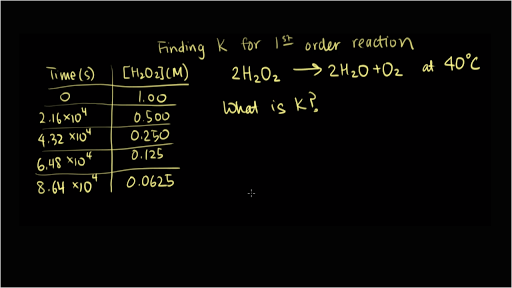 Finding K for 1st order reaction
Time(s) [H₂O₂](M)
0 1.00
2.16×10⁴ 0.500
4.32×10⁴ 0.250
6.48×10⁴ 0.125
8.64×10⁴ 0.0625
2H₂O₂ → 2H₂O+O₂ at 40°C
What is K?